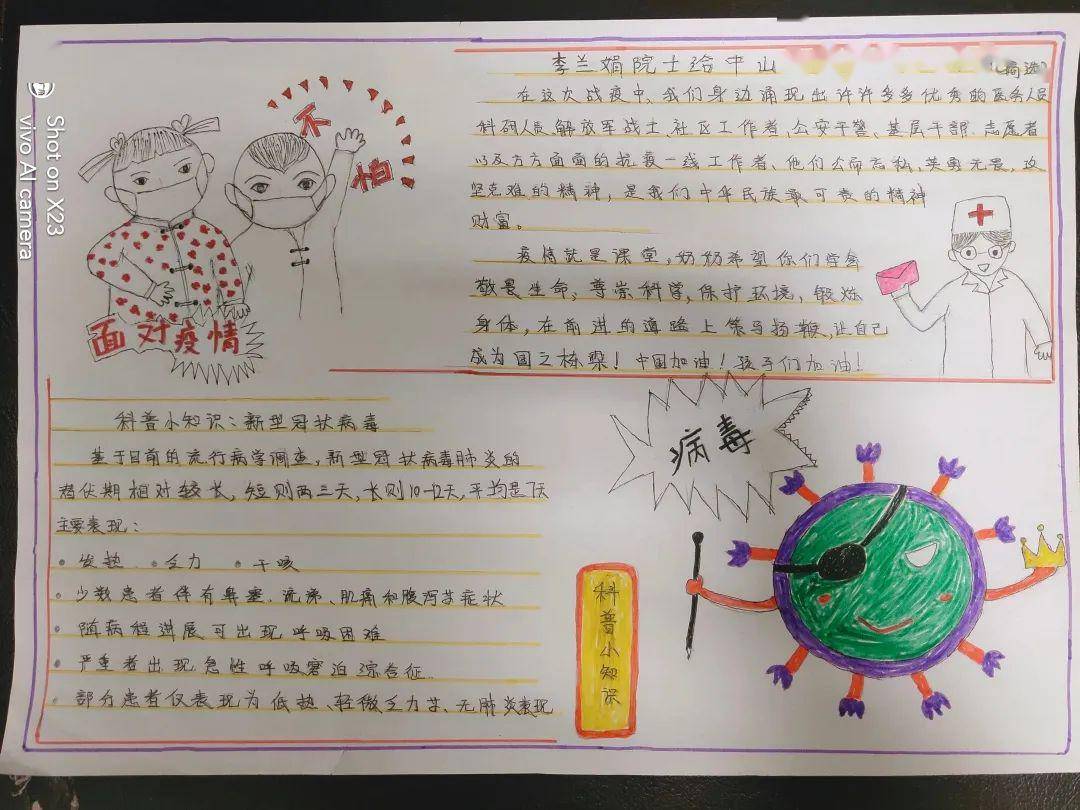 Shot on X23
vivo AI camera
不
怕
面对疫情
李兰娟院士给中山
(简选)
在这次战疫中、我们身边涌现出许许多多优秀的医务人员
科研人员、解放军战士、社区工作者、公安干警、基层干部、志愿者
以及方方面面的抗疫一线工作者、他们公而忘私,英勇无畏,攻
坚克难的精神,是我们中华民族最可贵的精神
财富。
疫情就是课堂,奶奶希望你们学会
敬畏生命,尊崇科学,保护环境,锻炼
身体,在前进的道路上策马扬鞭,让自己
成为国之栋梁!中国加油!孩子们加油!
科普小知识:新型冠状病毒
基于目前的流行病学调查,新型冠状病毒肺炎的
潜伏期相对较长,短则两三天,长则10-12天,平均是7天
主要表现:
• 发热 • 乏力 • 干咳
• 少数患者伴有鼻塞、流涕、肌痛和腹泻等症状
• 随病程进展可出现呼吸困难
• 严重者出现急性呼吸窘迫综合征
• 部分患者仅表现为低热、轻微乏力等、无肺炎表现
病毒
科普小知识